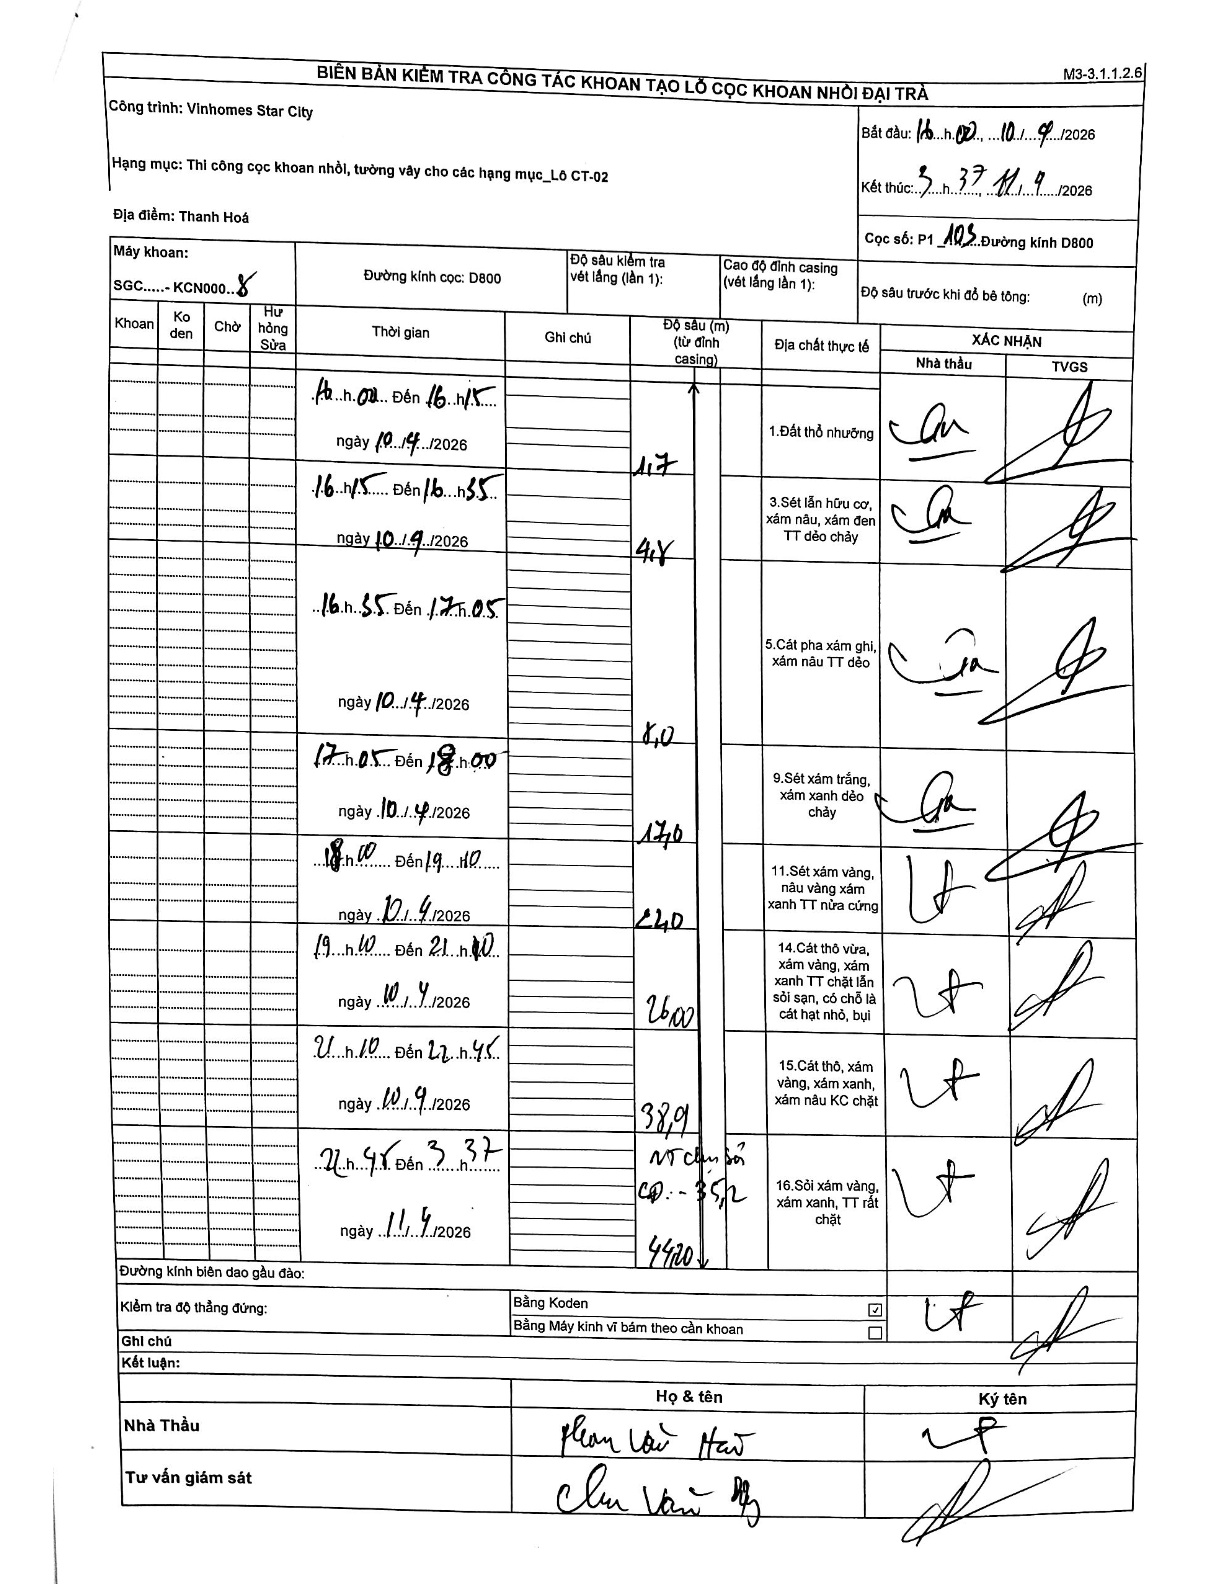 M3-3.1.1.2.6
BIÊN BẢN KIỂM TRA CÔNG TÁC KHOAN TẠO LỖ CỌC KHOAN NHỒI ĐẠI TRÀ
Công trình: Vinhomes Star City
Bắt đầu: 16...h.00., ...10./...4.../2026
Hạng mục: Thi công cọc khoan nhồi, tường vây cho các hạng mục_Lô CT-02
Kết thúc:..3....h..37..., ..11./..4..../2026
Địa điểm: Thanh Hoá
Cọc số: P1_103..Đường kính D800
Máy khoan:
SGC.....- KCN000..8
Đường kính cọc: D800
Độ sâu kiểm tra
vét lắng (lần 1):
Cao độ đỉnh casing
(vét lắng lần 1):
Độ sâu trước khi đổ bê tông: (m)
Khoan
Ko
den
Chờ
Hư
hỏng
Sửa
Thời gian
Ghi chú
Độ sâu (m)
(từ đỉnh
casing)
Địa chất thực tế
XÁC NHẬN
Nhà thầu
TVGS
.16..h.00... Đến .16..h.15....
ngày .10../.4.../2026
1,7
1.Đất thổ nhưỡng
.16..h.15..... Đến .16...h.35..
ngày .10./.4../2026
4,8
3.Sét lẫn hữu cơ,
xám nâu, xám đen
TT dẻo chảy
..16.h..35. Đến .17..h..05.
ngày .10../.4../2026
8,0
5.Cát pha xám ghi,
xám nâu TT dẻo
.17...h.05... Đến .18..h.00
ngày .10../..4./2026
17,0
9.Sét xám trắng,
xám xanh dẻo
chảy
...18.h.00 Đến .19....10.....
ngày ..10../..4../2026
22,0
11.Sét xám vàng,
nâu vàng xám
xanh TT nửa cứng
.19...h..10 Đến 21...h.10
ngày ..10../..4../2026
26,00
14.Cát thô vừa,
xám vàng, xám
xanh TT chặt lẫn
sỏi sạn, có chỗ là
cát hạt nhỏ, bụi
.21...h.10.... Đến 22..h.45..
ngày ..10./..4../2026
38,9
15.Cát thô, xám
vàng, xám xanh,
xám nâu KC chặt
..22.h..45. Đến..3....h..37...
NT chạm sỏi
CĐ: - 35,2
ngày ..11./..4../2026
44,20
16.Sỏi xám vàng,
xám xanh, TT rất
chặt
Đường kính biên dao gầu đào:
Kiểm tra độ thẳng đứng:
Bằng Koden
Bằng Máy kinh vĩ bám theo cần khoan
Ghi chú
Kết luận:
Họ & tên
Ký tên
Nhà Thầu
Phan Văn
Tư vấn giám sát
Chu Văn